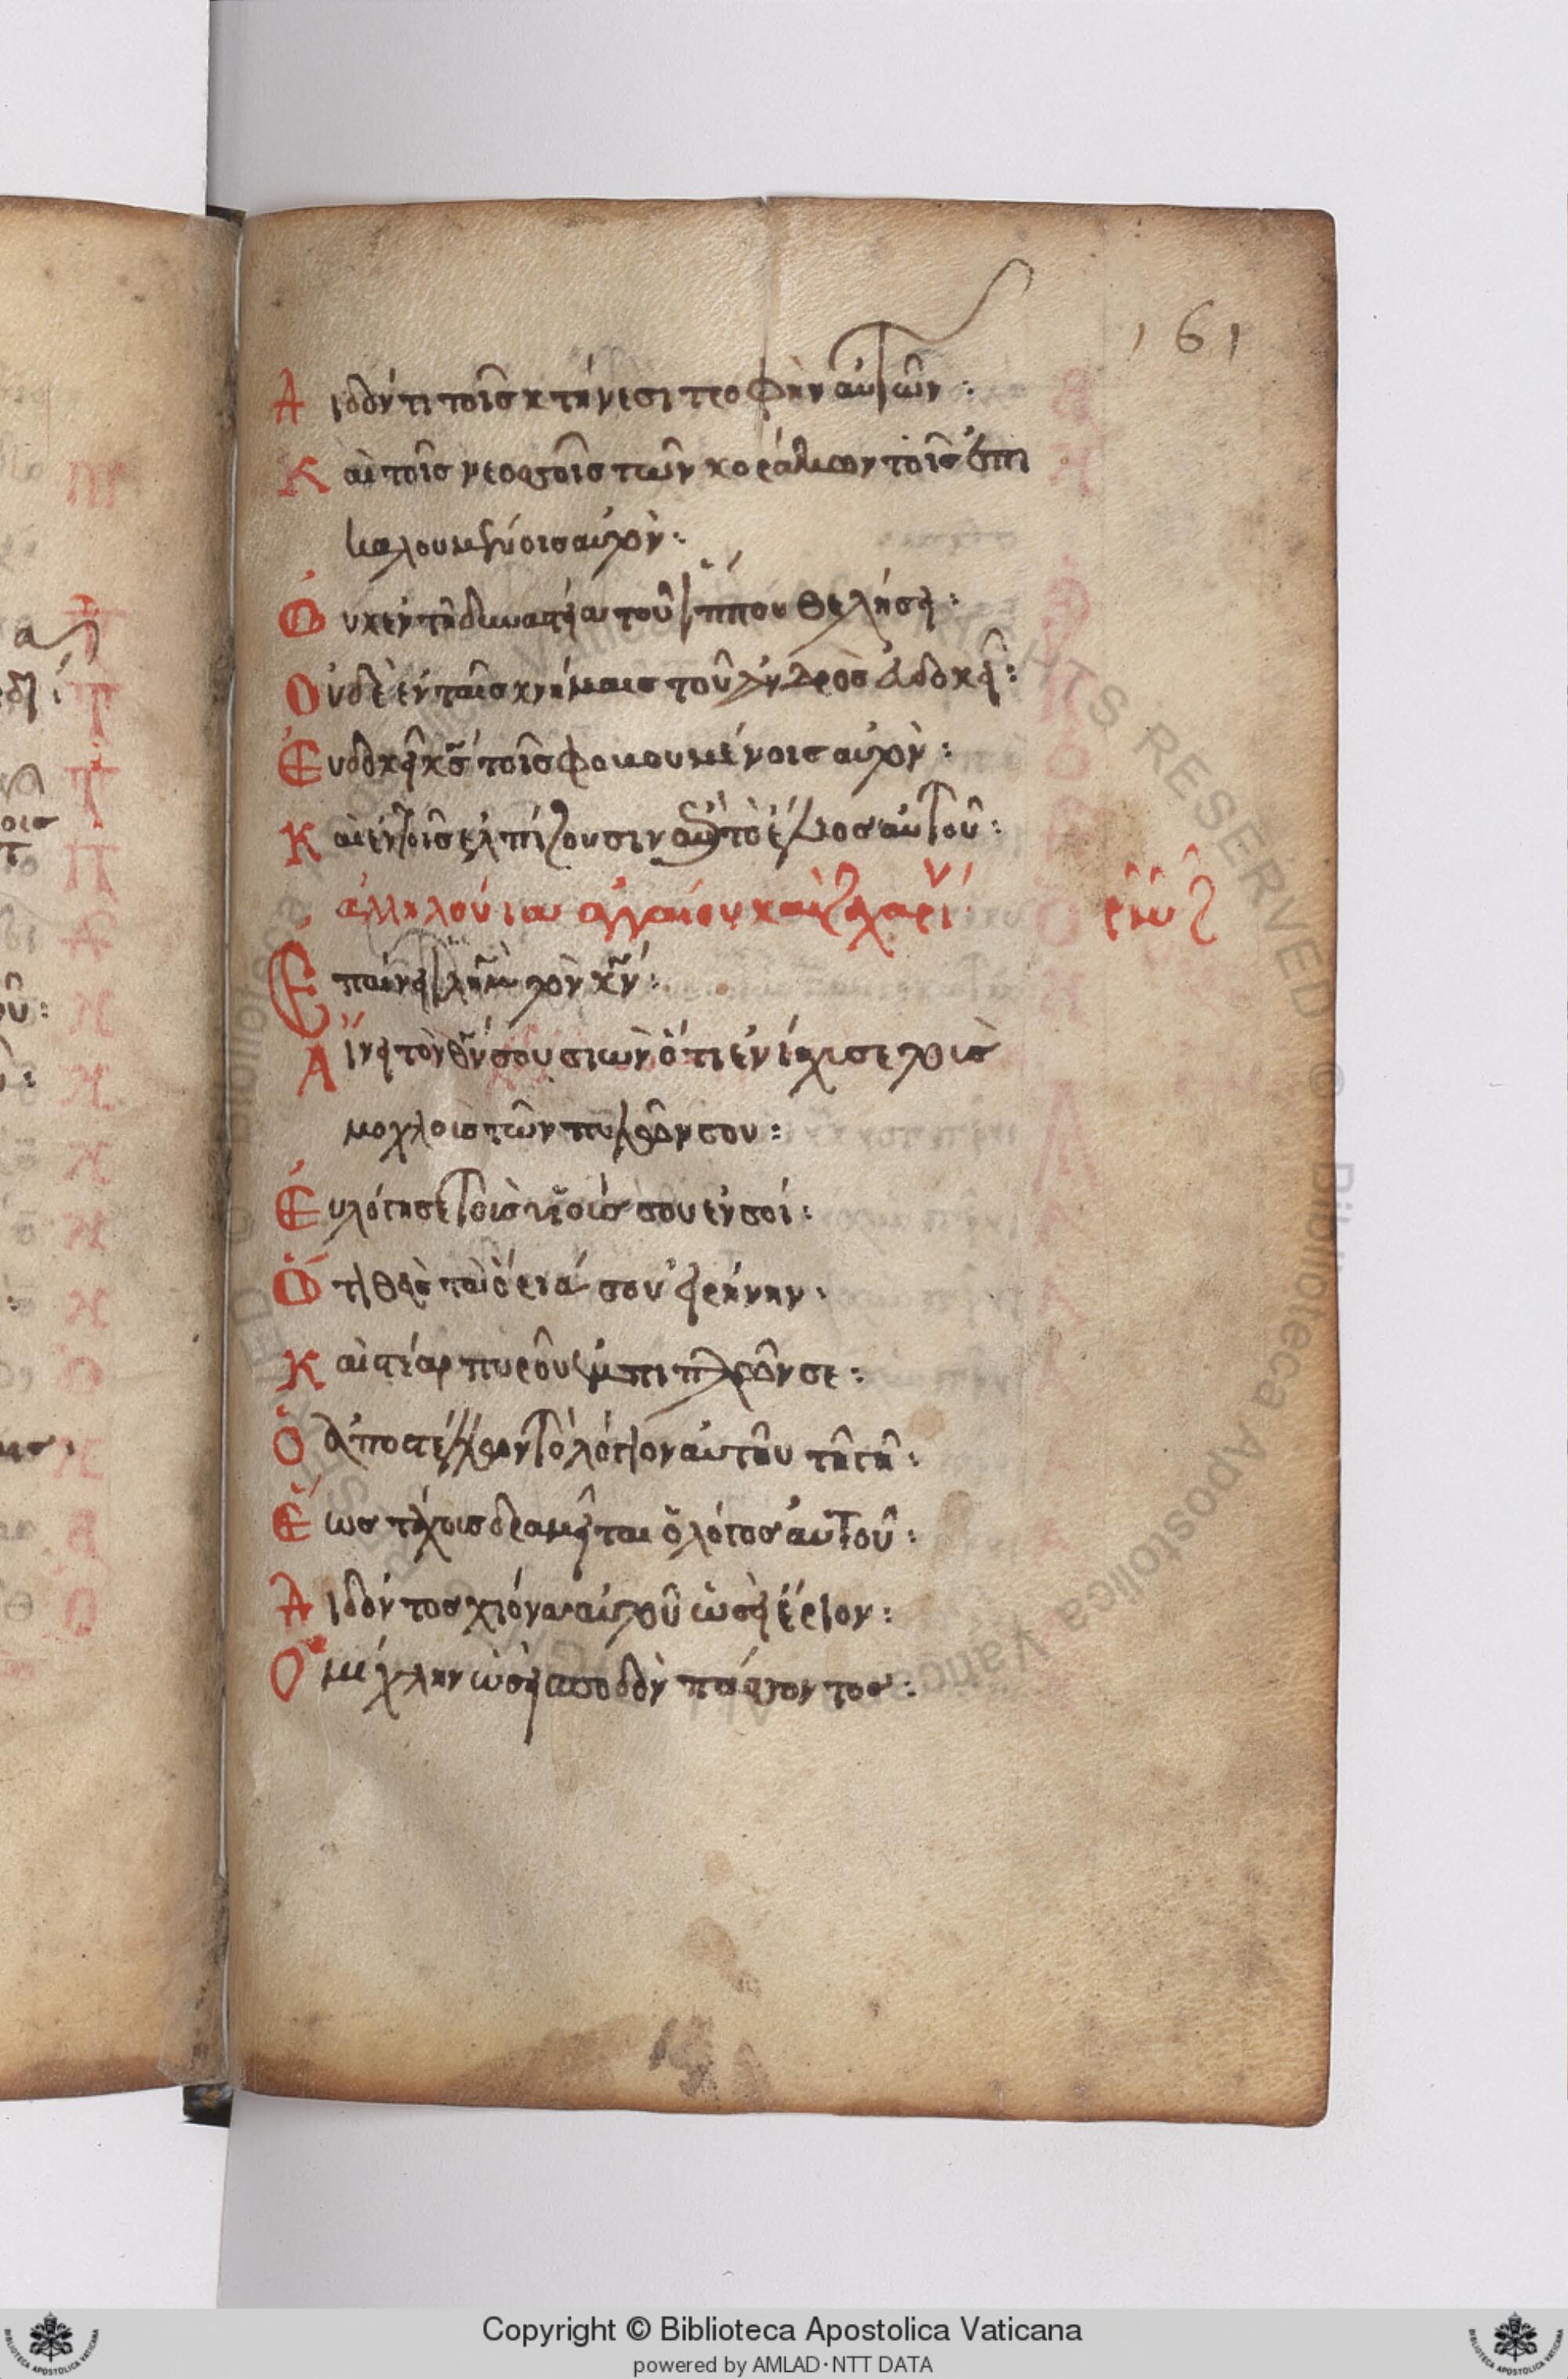 161
Αιδόντι τοῖς κτήνεσι τροφὴν αὐτῶν:
Καὶ τοῖς νεοσσοῖς τῶν κοράκων τοῖς ἐπι
καλουμένοις αὐτὸν:
Οὐκ ἐν τῆ δυναστεία τοῦ ἵππου θελήσει:
Οὐδὲ ἐν ταῖς κνήμαις τοῦ ἀνδρὸς εὐδοκεῖ:
Εὐδοκεῖ κς τοῖς φοβουμένοις αὐτὸν:
Καὶ ἐν τοῖς ἐλπίζουσιν ἐπὶ τὸ ἔλεος αὐτοῦ:
ἀλληλούια ἀγγαίου καὶ ζαχαρί: ρμζ
Ἐπαίνει ιλημ τὸν κν:
Αἴνει τὸν θν σου σιὼν ὅτι ἐνίσχυσε τοὺς
μοχλοὺς τῶν πυλῶν σου:
Εὐλόγησε τοὺς υἱούς σου ἐν σοί:
Ὁ τιθεὶς τὰ ὅριά σου εἰρήνην:
Καὶ στέαρ πυροῦ ἐμπιπλῶν σε:
Ὁ ἀποστέλλων τὸ λόγιον αὐτοῦ τῆ γῆ:
Ἕως τάχους δραμεῖται ὁ λόγος αὐτοῦ:
Αιδόντος χιόνα αὐτοῦ ὡσεὶ ἔριον:
Ὀμίχλην ὡσεὶ σποδὸν πάσσοντος:
Copyright © Biblioteca Apostolica Vaticana
powered by AMLAD·NTT DATA